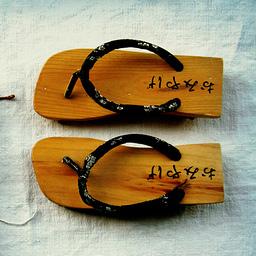 おみやげ
おみやげ